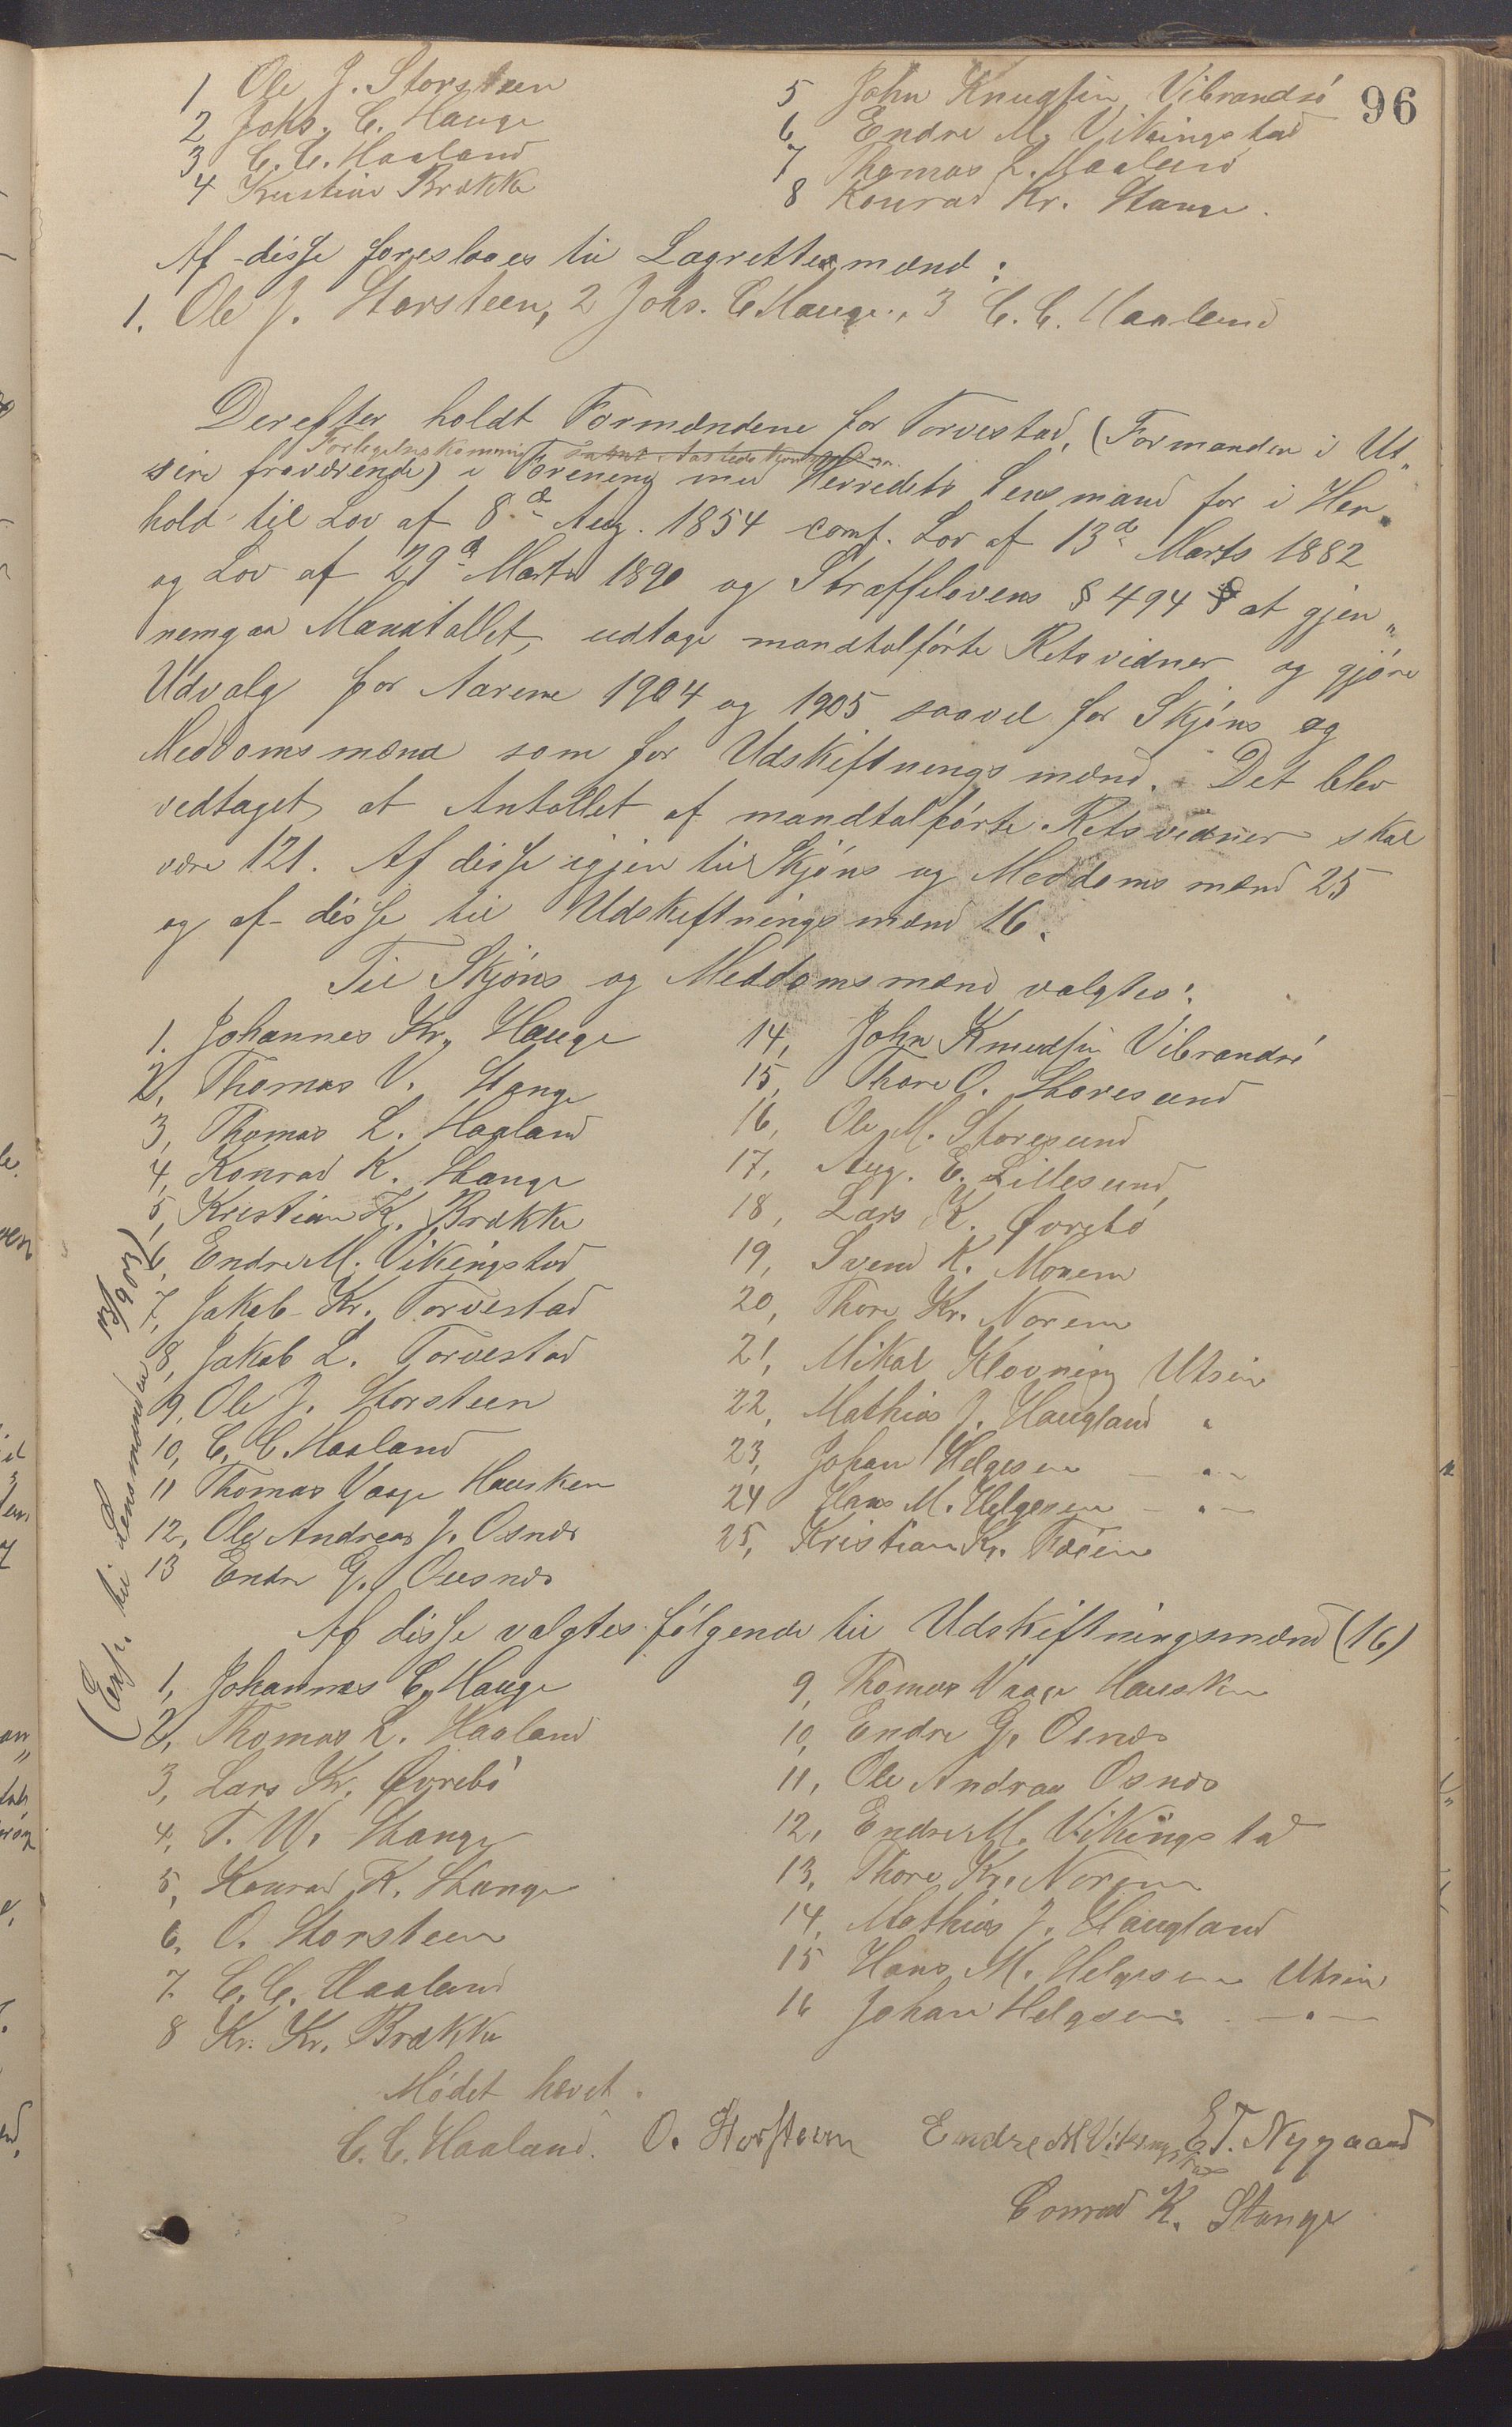 96
1 Ole J. Storsteen
2 Johs. C. Hauge
3 C. C. Haaland
4 Kristian Brække
5 John Knudsen Vibrandsö
6 Endre M. Vikingstad
7 Thomas L. Haaland
8 Konrad Kr. Stange.
Af disse foreslaaes til Lagrettemænd:
1. Ole J. Storsteen, 2 Johs. C. Hauge., 3 C. C. Haaland
Derefter holdt Formændene for Torvestad, (Formanden i Ut„
Forligelseskommis
sire fraværende) i Forening med Herredets Lensmand for i Hen„
hold til Lov af 8de Aug. 1854 comf. Lov af 13de Marts 1882
og Lov af 29d Marts 1890 og Straffelovens § 494 at gjen„
nemgaa Mandtallet, udtage mandtalførte Retsvidner og gjøre
Udvalg for Aarene 1904 og 1905 saavel for Skjøns og
Meddomsmænd som for Udskiftningsmænd. Det blev
vedtaget at Antallet af mandtalførte Retsvidner skal
være 121. Af disse igjen til Skjøns og Meddomsmænd 25
og af disse til Udskiftningsmænd 16.
Til Skjøns og Meddomsmænd valgtes:
1. Johannes Kr. Hauge
2, Thomas V. Stange
3, Thomas L. Haaland
4, Konrad K. Stange
5, Kristian K. Brække
6, Endre M. Vikingstad
7, Jakob Kr. Torvestad
8, Jakob L. Torvestad
9, Ole J. Storsteen
10, C. C. Haaland
11 Thomas Vaage Hausken
12, Ole Andreas J. Osnes
13 Endre G. Ousnes
14, John Knudsen Vibrandsö
15, Thore O. Storesund
16, Ole M. Storesund
17, Aug. E. Lillesund,
18, Lars K. Øvrebö
19, Svend K. Monem
20, Thore Kr. Norem
21, Mikal Klovning Utsire
22, Mathias J. Haugland "
23, Johan Helgesen — " —
24 Hans M. Helgesen — " —
25, Kristian Kr.
(Exp. til Lensmanden 903)
Af disse valgtes følgende til Udskiftningsmænd (16)
1, Johannes C. Hauge
2, Thomas L. Haaland
3, Lars Kr. Øvrebö
4, T. W. Stange
5, Konrad K. Stange
6, O. Storsteen
7. C. C. Haaland
8 Kr. Kr. Brække
9, Thomas Vaage Hausken
10, Endre G. Osnes
11, Ole Andreas Osnes
12, Endre M. Vikingstad
13, Thore Kr. Norem
14, Mathias J. Haugland
15 Hans M. Helgesen Utsire
16 Johan Helgesen — " —
Mödet hævet.
C. C. Haaland. O. Storsteen Endre M Vikingstad E T. Nygaard
Conrad K. Stange